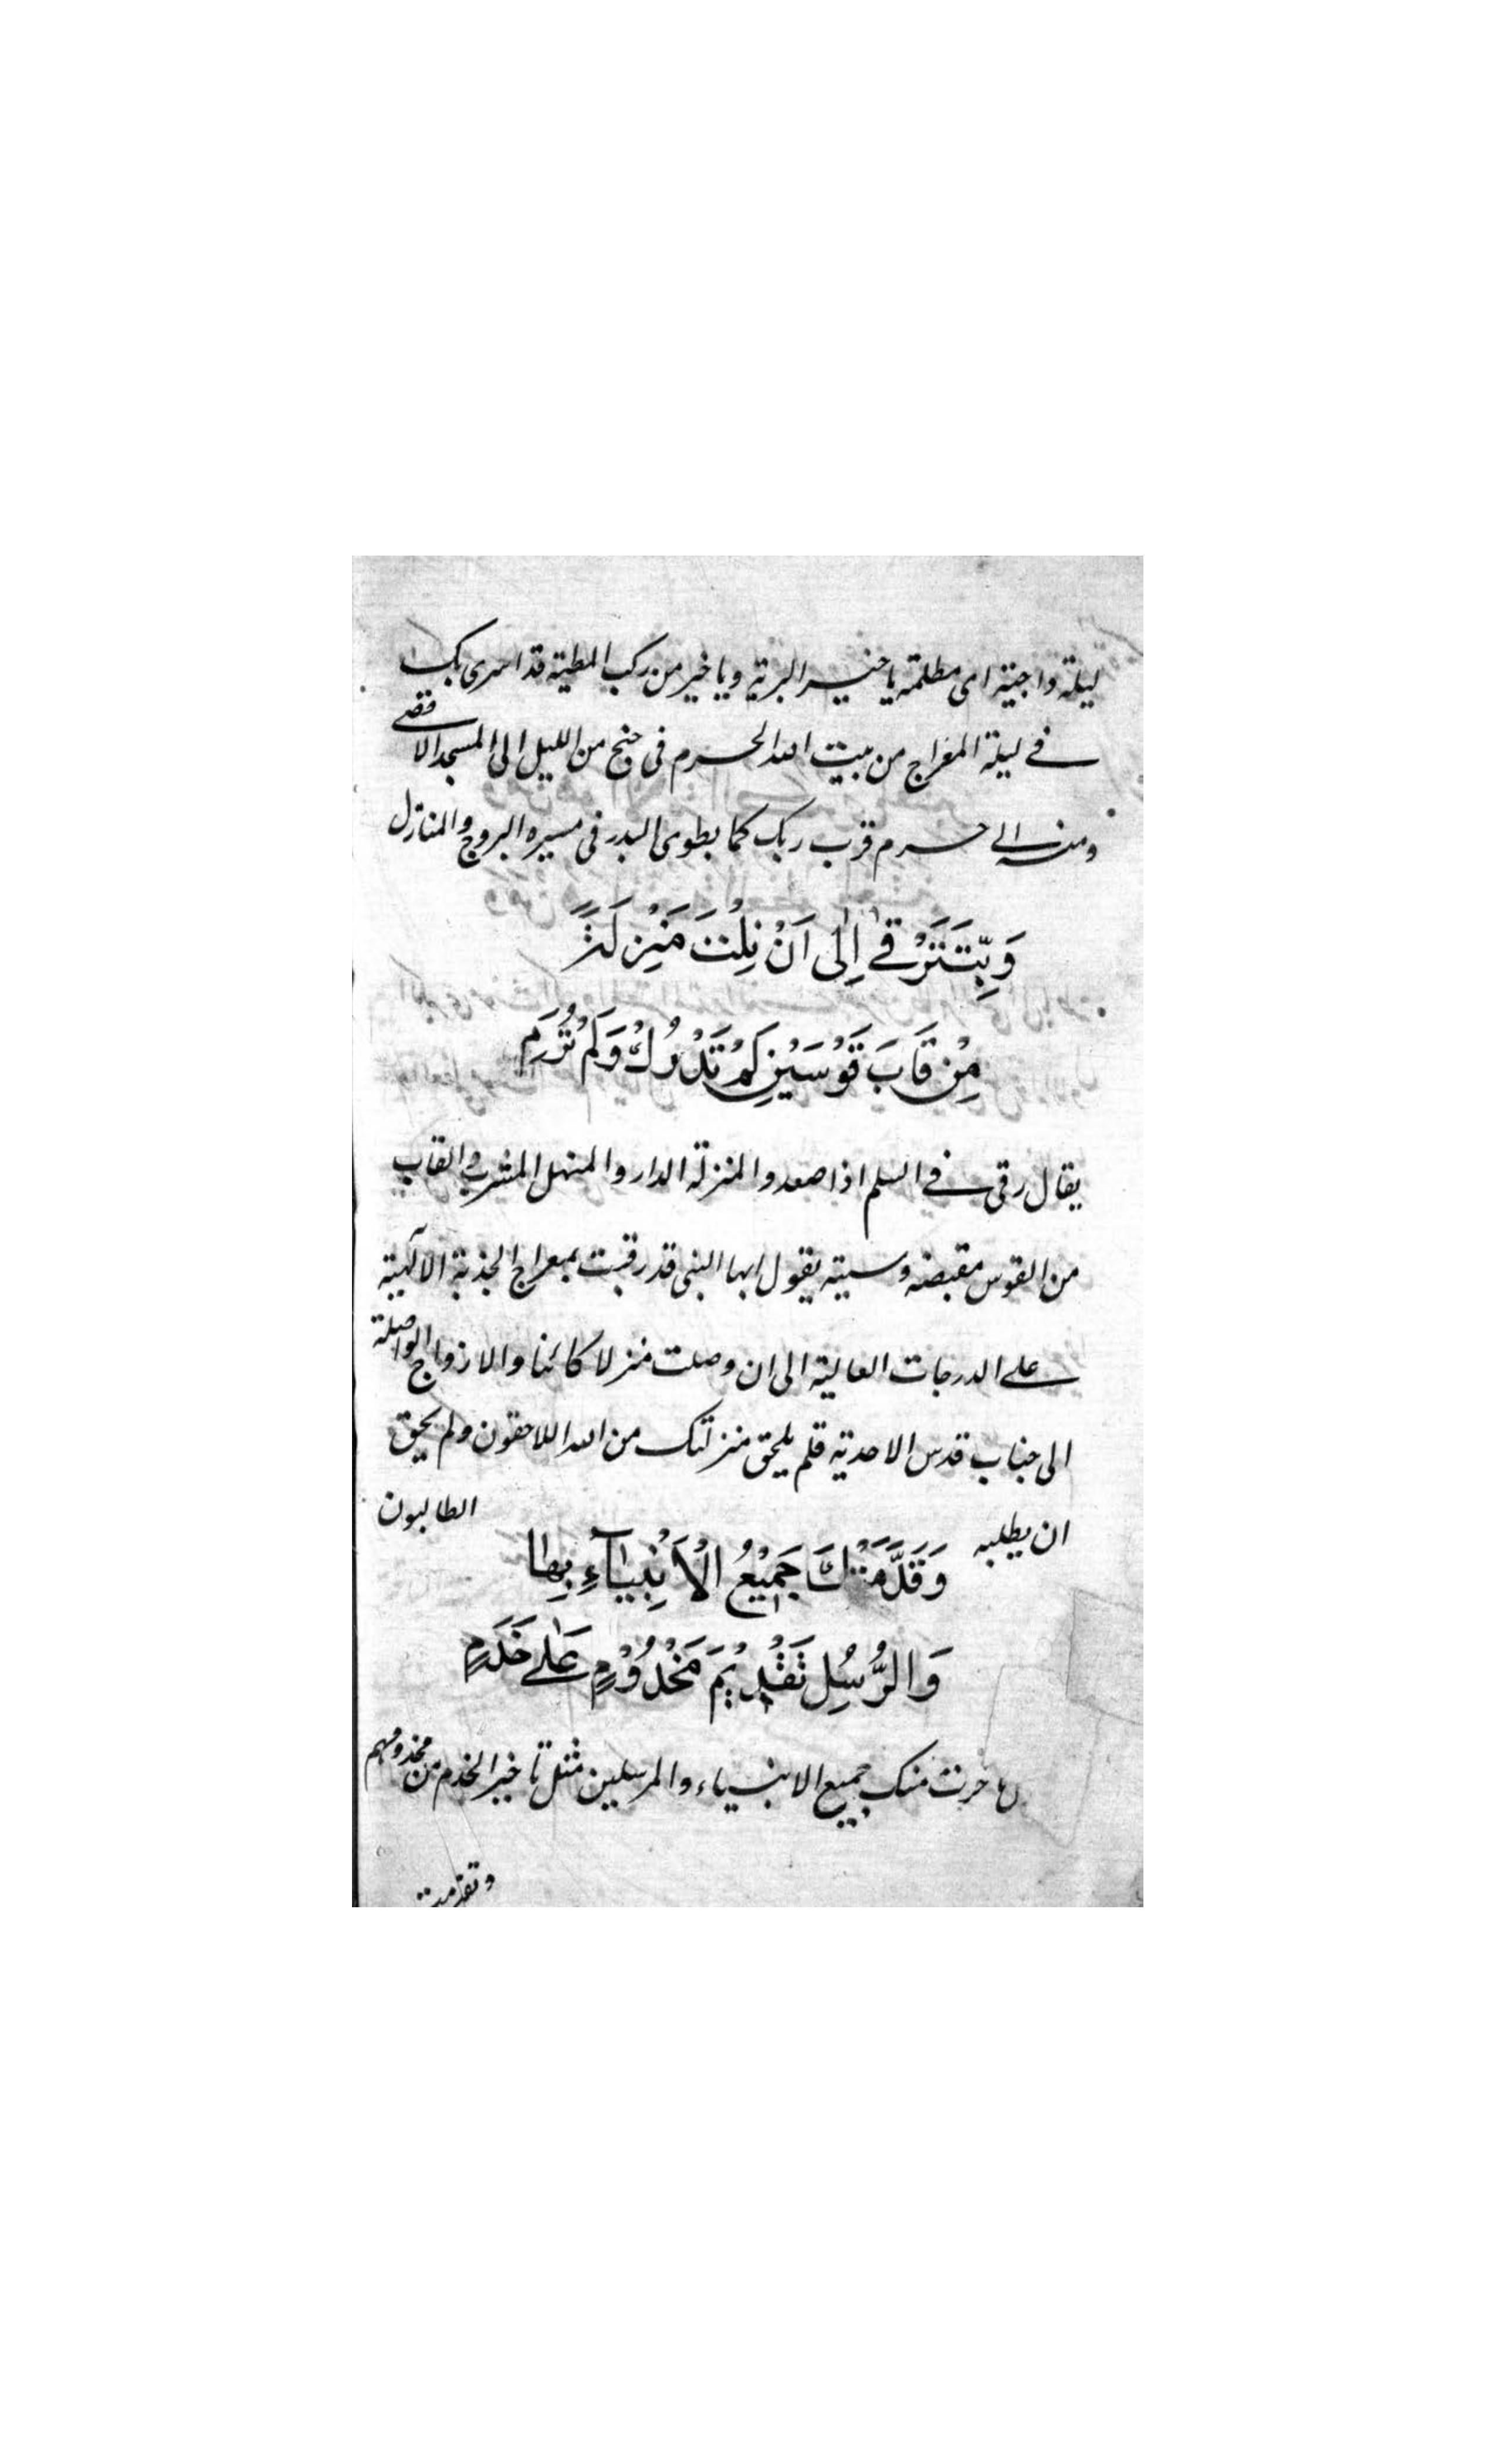 ليلة داجية اى مظلمة يا خير البرية ويا خير من ركب المطية قد اسرى بك
في ليلة المعراج من بيت الله الحرم فى جنح من الليل الى المسجد الاقصى
ومنه الى حرم قرب ربك كما يطوى البدر فى مسيره البروج والمنازل
وَبِتَّ تَرْقٰى اِلٰى اَنْ نِلْتَ مَنْزِلَةً
مِنْ قَابَ قَوْسَيْنِ لَمْ تُدْرَكْ وَلَمْ تُرَمِ
يقال رقى في السلم اذا صعد والمنزلة الدار والمنهل المشرب والقاب
من القوس مقبضه وسيته يقول ايها النبى قد رقيت بمعراج الجذبة الآلهية
على الدرجات العالية الى ان وصلت منزلا كائنا والازواج الواصلة
الى جناب قدس الاحدية فلم يلحق منزلتك من الله اللاحقون ولم يحق
ان يطلبه الطالبون
وَقَدَّمَتْكَ جَمِيْعُ الْاَنْبِيَآءِ بِهَا
وَالرُّسُلِ تَقْدِيْمَ مَخْدُوْمٍ عَلٰى خَدَمٍ
تاخرت منك جميع الانبياء والمرسلين مثل تاخير الخدم من مخدومهم
وتقدمت